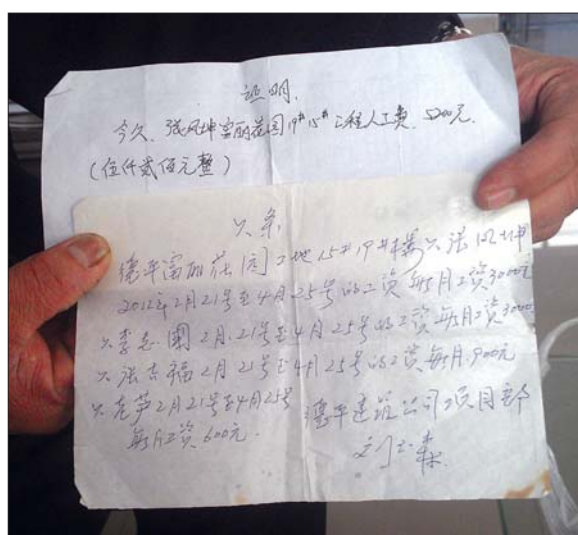 证明.
今欠、张凤坤富丽花园19#15#工程人工费.5200元.
(伍仟贰佰元整)
欠条
德平富丽花园工地15#19#楼欠张凤坤
2012年2月21号至4月25号的工资每月工资3000元
欠李志国2月21号至4月25号的工资每月工资3000
欠张吉福2月21号至4月25号的工资每月900元
欠 芦2月21号至4月25号
每月工资600元.
德平建筑公司项目部